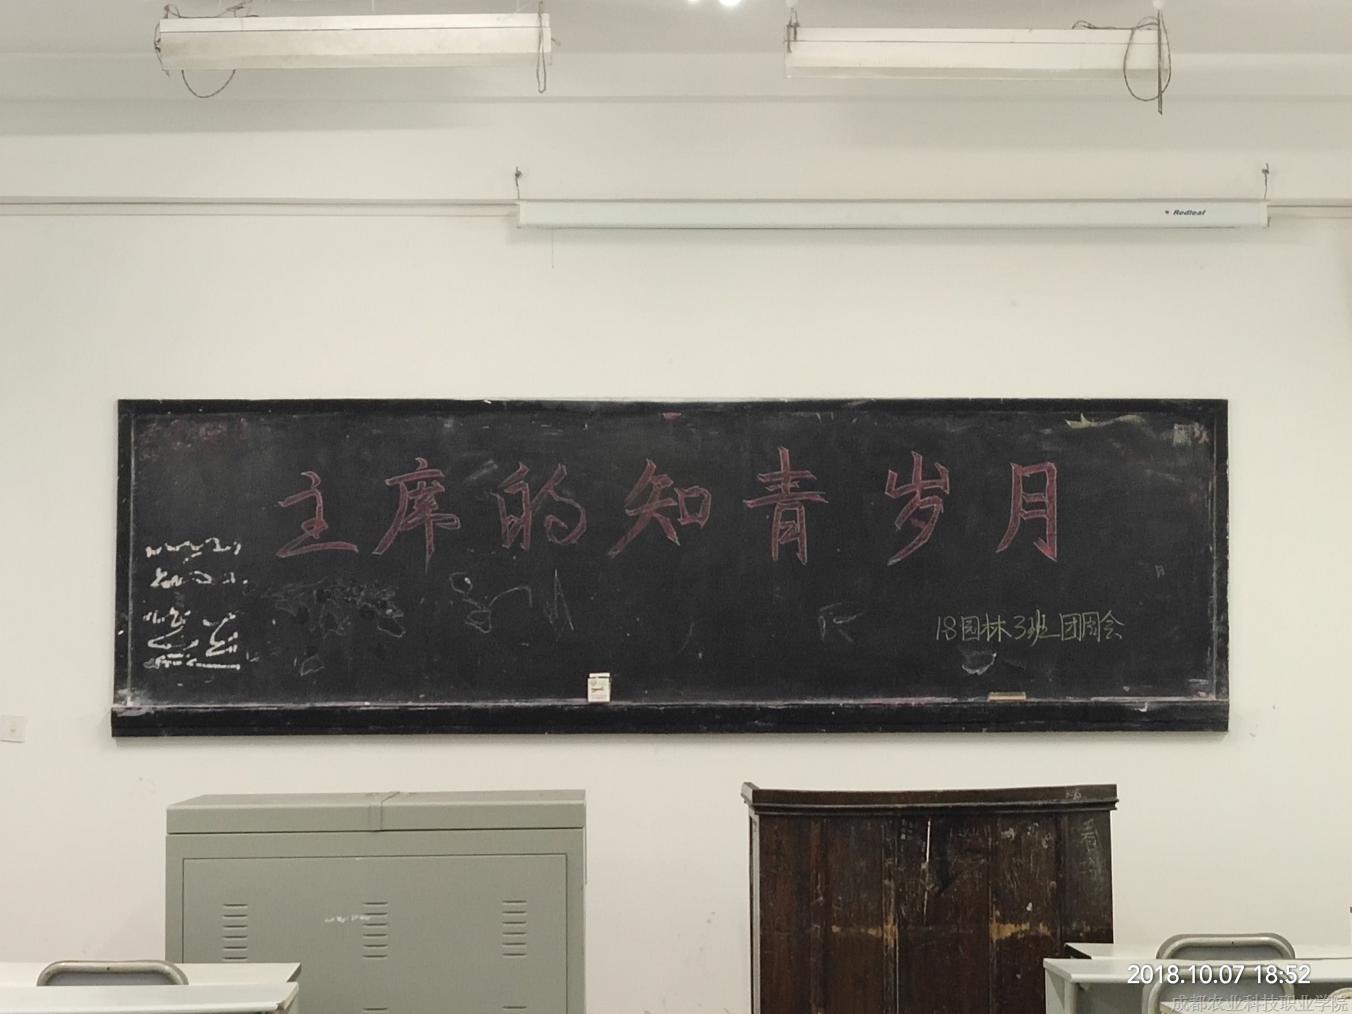 Redleaf
主席的知青岁月
18园林3班团周会
2018.10.07 18:52
成都农业科技职业学院